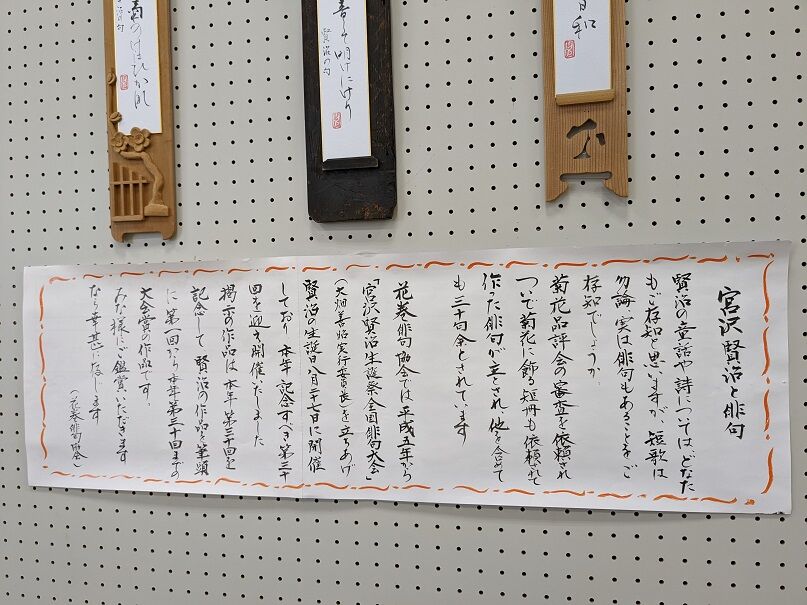 日和
善く明けにけり
賢治の句
菊のはひかれ
賢治の句
宮沢賢治と俳句
賢治の童話や詩についてはどなた
もご存知と思いますが、短歌は
勿論、実は俳句もあることをご
存知でしょうか。
菊花品評会の審査を依頼され
ついで菊花に飾る短冊も依頼されて
作った俳句が立とされ、他を含めて
も三十句余とされています
花巻俳句協会では平成五年から
「宮沢賢治生誕祭全国俳句大会」
(大畑善昭実行委員長)を立ちあげ
賢治の生誕日八月二十七日に開催
しており 本年 記念すべき第三十
回を迎え開催いたしました
掲示の作品は 本年 第三十回を
記念して 賢治の作品を筆頭
に 第一回から 本年第三十回までの
大会賞の作品です。
みな様にご鑑賞いただきます
なら幸甚に存じます
(花巻俳句協会)